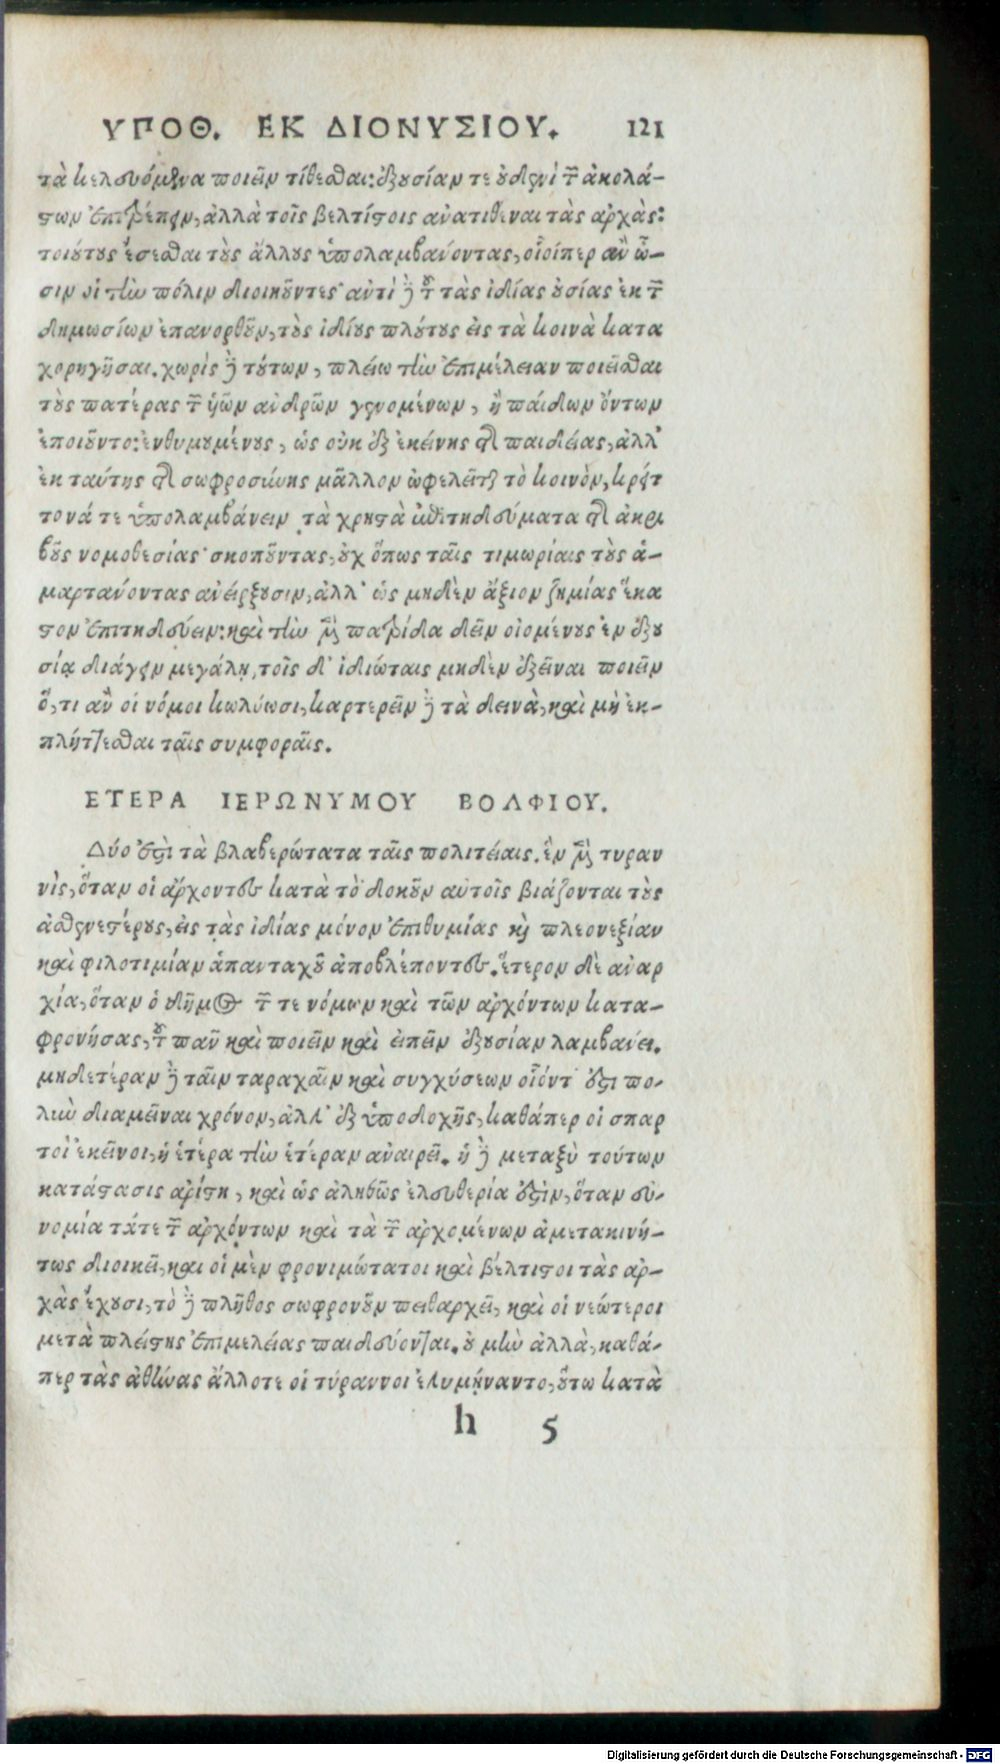 ΥΠΟΘ. ΕΚ ΔΙΟΝΥΣΙΟΥ. 121
τὰ κελευόμενα ποιεῖν τίθεσθαι: ἐξουσίαν τε οὐδενὶ τῶν ἀκολά-
στων ἐπιτρέπειν, ἀλλὰ τοῖς βελτίστοις ἀνατιθέναι τὰς ἀρχὰς:
τοιούτους ἔσεσθαι τοὺς ἄλλους ὑπολαμβάνοντας, οἷοίπερ ἂν ὦ-
σιν οἱ τὴν πόλιν διοικοῦντες· ἀντὶ δὲ τοῦ τὰς ἰδίας οὐσίας ἐκ τῶν
δημωσίων ἐπανορθοῦν, τοὺς ἰδίους πλούτους εἰς τὰ κοινὰ κατα
χορηγῆσαι. χωρὶς δὲ τούτων, πλείω τὴν ἐπιμέλειαν ποιεῖσθαι
τοὺς πατέρας τῶν ὑῶν ἀνδρῶν γενομένων, ἢ παίδων ὄντων
ἐποιοῦντο: ἐνθυμουμένους, ὡς οὐκ ἐξ ἐκείνης τῆς παιδείας, ἀλλ'
ἐκ ταύτης τῆς σωφροσύνης μᾶλλον ὠφελεῖται τὸ κοινὸν, κρείτ
τονά τε ὑπολαμβάνειν τὰ χρηστὰ ἐπιτηδεύματα τῆς ἀκρι
βοῦς νομοθεσίας· σκοποῦντας, οὐχ ὅπως ταῖς τιμωρίαις τοὺς ἁ-
μαρτάνοντας ἀνείρξουσιν, ἀλλ' ὡς μηδὲν ἄξιον ζημίας ἕκα
στον ἐπιτηδεύειν: καὶ τὴν μὲν πατρίδα δεῖν οἰομένους ἐν ἐξου
σίᾳ διάγειν μεγάλῃ, τοῖς δ' ἰδιώταις μηδὲν ἐξεῖναι ποιεῖν
ὅ, τι ἂν οἱ νόμοι κωλύωσι, καρτερεῖν δὲ τὰ δεινὰ, καὶ μὴ ἐκ-
πλήττεσθαι ταῖς συμφοραῖς.
ΕΤΕΡΑ ΙΕΡΩΝΥΜΟΥ ΒΟΛΦΙΟΥ.
Δύο ἐστὶ τὰ βλαβερώτατα ταῖς πολιτείαις. ἓν μὲν τυραν
νὶς, ὅταν οἱ ἄρχοντες κατὰ τὸ δοκοῦν αὐτοῖς βιάζονται τοὺς
ἀσθενεστέρους, εἰς τὰς ἰδίας μόνον ἐπιθυμίας καὶ πλεονεξίαν
καὶ φιλοτιμίαν ἁπανταχοῦ ἀποβλέποντες. ἕτερον δὲ ἀναρ
χία, ὅταν ὁ δῆμος τῶν τε νόμων καὶ τῶν ἀρχόντων κατα-
φρονήσας, τοῦ πᾶν καὶ ποιεῖν καὶ εἰπεῖν ἐξουσίαν λαμβάνει.
μηδετέραν δὲ ταῖν ταραχαῖν καὶ συγχύσεων οἷόντ' ἐστι πο-
λὺν διαμεῖναι χρόνον, ἀλλ' ἐξ ὑποδοχῆς, καθάπερ οἱ σπαρ
τοὶ ἐκεῖνοι, ἡ ἑτέρα τὴν ἑτέραν ἀναιρεῖ. ἡ δὲ μεταξὺ τούτων
κατάστασις ἀρίστη, καὶ ὡς ἀληθῶς ἐλευθερία ἐστὶν, ὅταν εὐ-
νομία τάτε τῶν ἀρχόντων καὶ τὰ τῶν ἀρχομένων ἀμετακινή-
τως διοικεῖ, καὶ οἱ μὲν φρονιμώτατοι καὶ βέλτιστοι τὰς ἀρ-
χὰς ἔχουσι, τὸ δὲ πλῆθος σωφρονοῦν πειθαρχεῖ, καὶ οἱ νεώτεροι
μετὰ πλείστης ἐπιμελείας παιδεύονται. οὐ μὴν ἀλλὰ, καθά-
περ τὰς ἀθήνας ἄλλοτε οἱ τύραννοι ἐλυμήναντο, οὕτω κατὰ
h 5
Digitalisierung gefördert durch die Deutsche Forschungsgemeinschaft - DFG